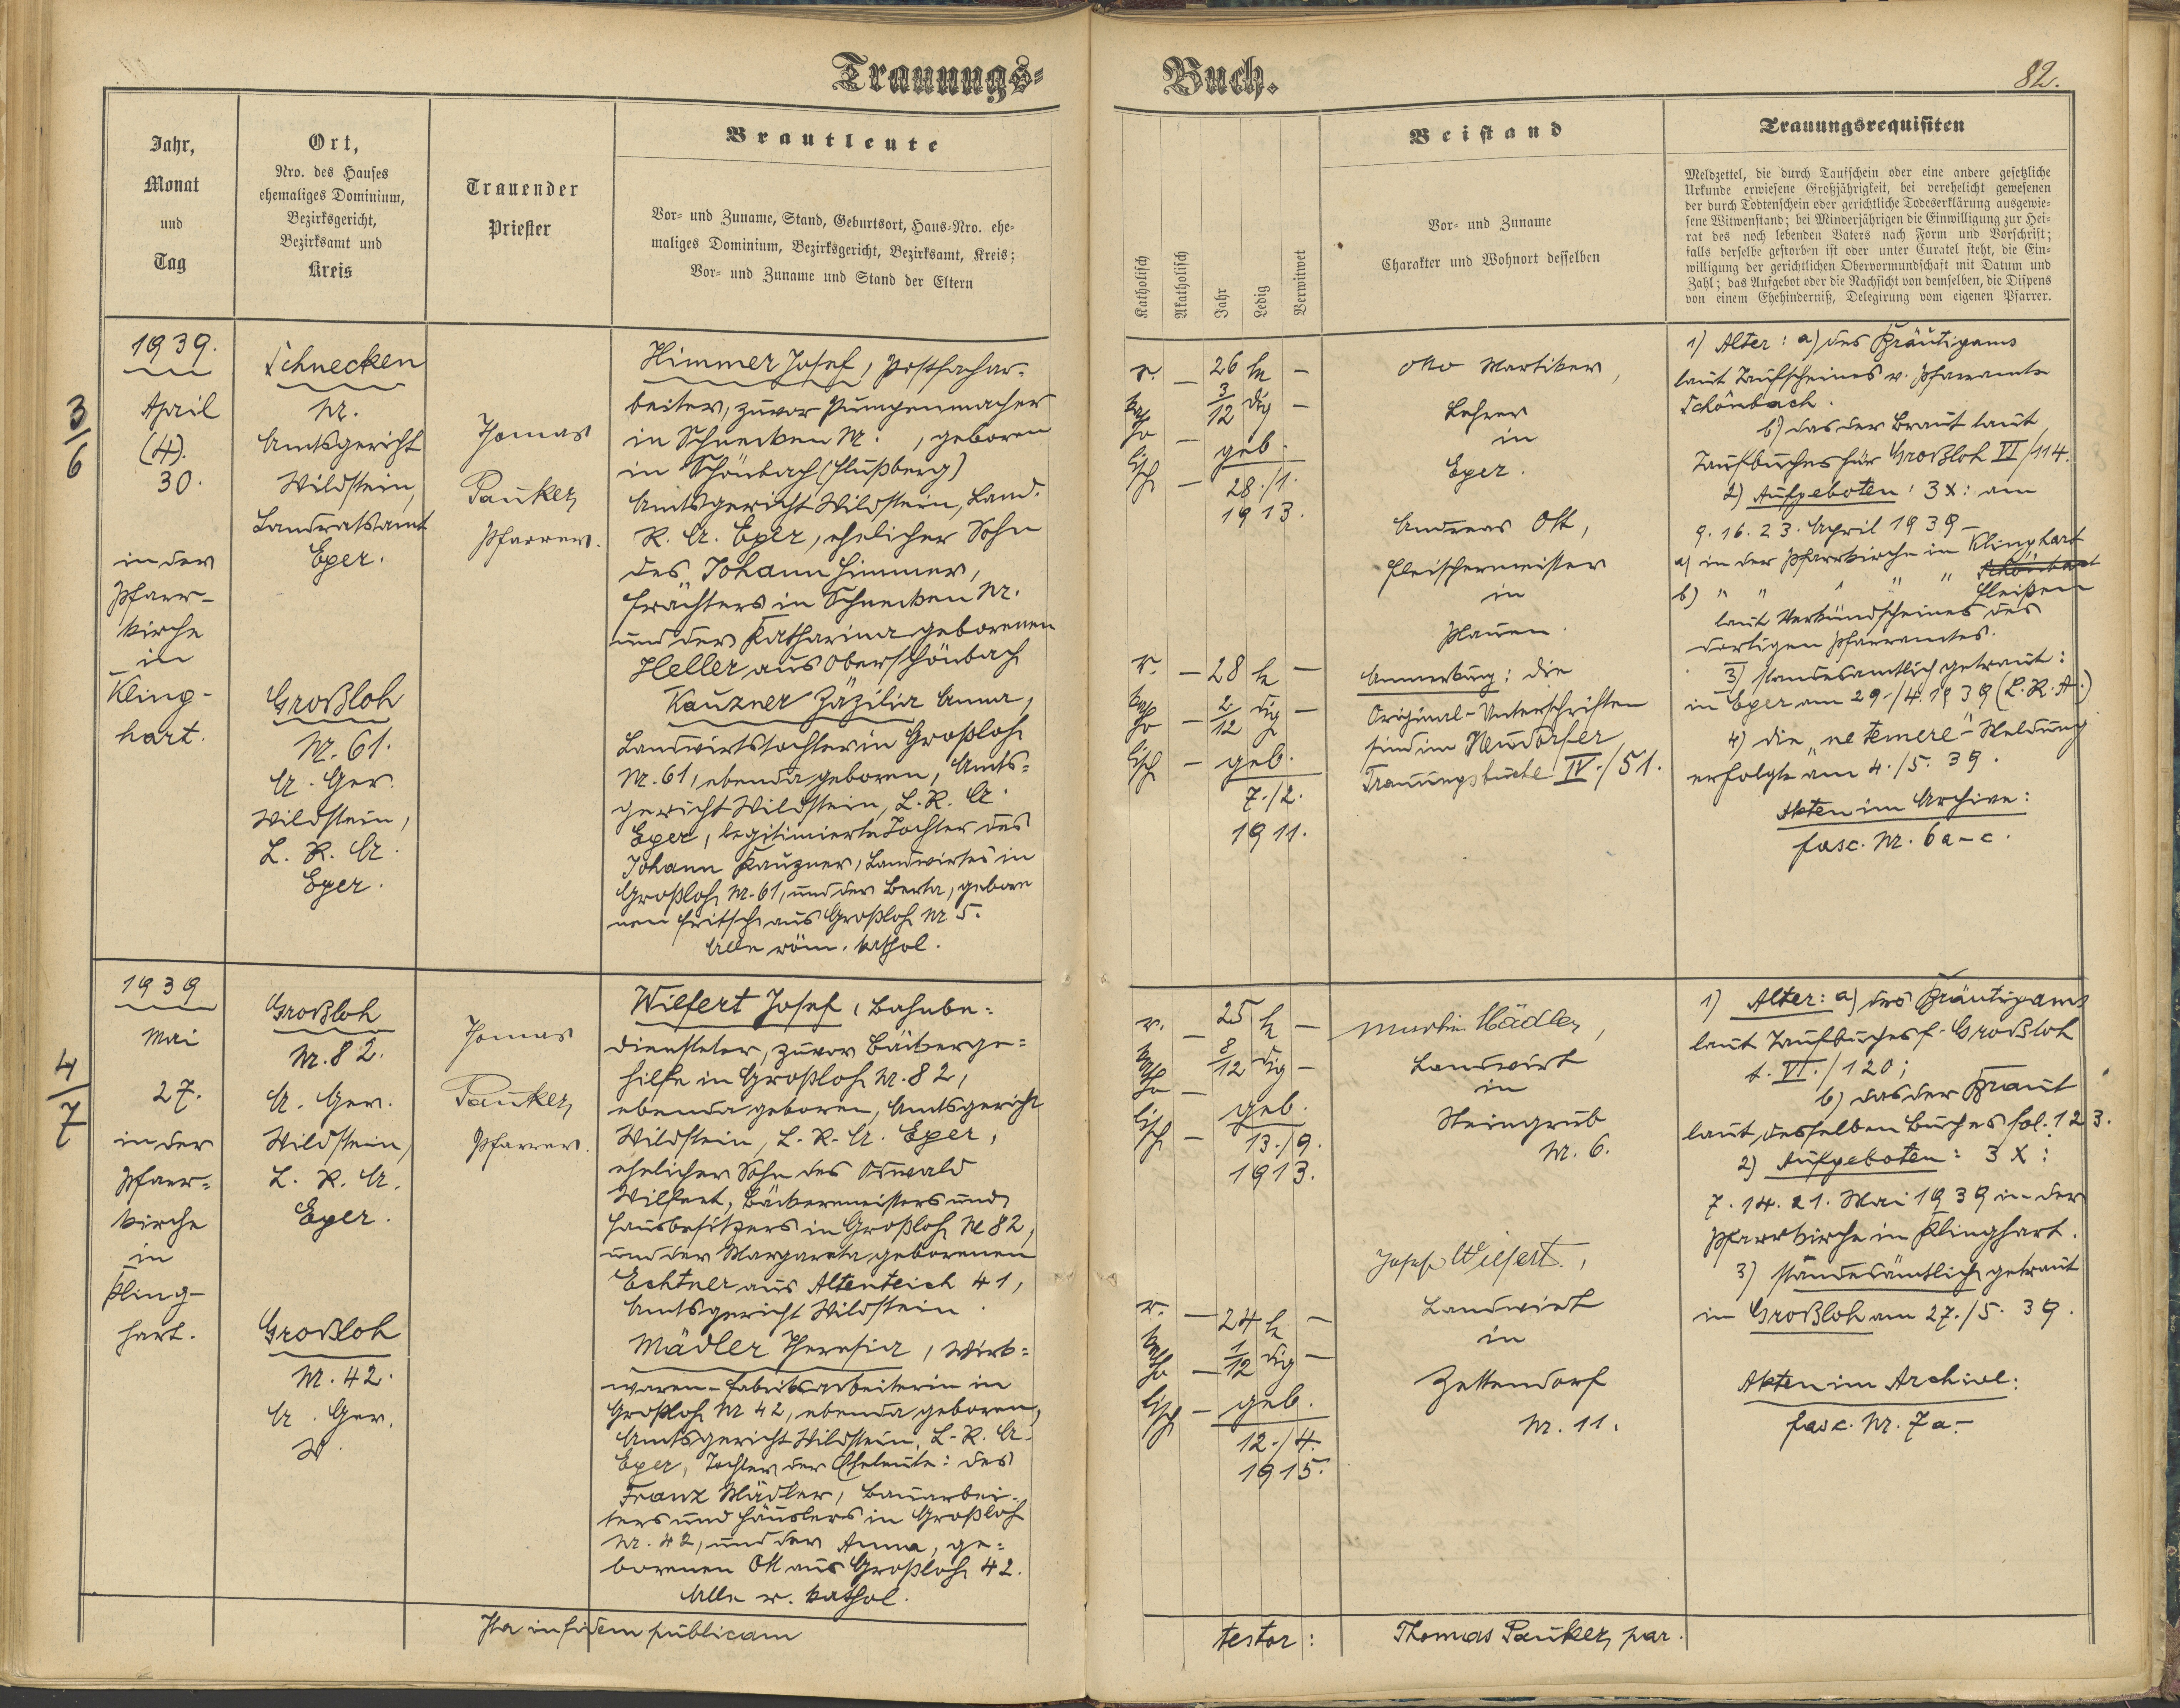 Trauungs-
Buch.
82.
Jahr,
Monat
und
Tag
Ort,
Nro. des Hauses
ehemaliges Dominium,
Bezirksgericht,
Bezirksamt und
Kreis
Trauender
Priester
Brautleute
Vor- und Zuname, Stand, Geburtsort, Haus-Nro. ehe-
maliges Dominium, Bezirksgericht, Bezirksamt, Kreis;
Vor- und Zuname und Stand der Eltern
Katholisch
Akatholisch
Jahr
Ledig
Verwitwet
Beistand
Vor- und Zuname
Charakter und Wohnort desselben
Trauungsrequisiten
Meldzettel, die durch Taufschein oder eine andere gesetzliche
Urkunde erwiesene Großjährigkeit, bei verehelicht gewesenen
der durch Todtenschein oder gerichtliche Todeserklärung ausgewie-
sene Witwenstand; bei Minderjährigen die Einwilligung zur Hei-
rat des noch lebenden Vaters nach Form und Vorschrift;
falls derselbe gestorben ist oder unter Curatel steht, die Ein-
willigung der gerichtlichen Obervormundschaft mit Datum und
Zahl; das Aufgebot oder die Nachsicht von demselben, die Dispens
von einem Ehehinderniß, Delegirung vom eigenen Pfarrer.
3/6
1939.
April
(4).
30.
in der
Pfarr-
kirche
in
Kling-
hart.
Schnecken
Nr.
Amtsgericht
Wildstein,
Landratsamt
Eger.
Großloh
Nr. 61.
A. Ger.
Wildstein,
L. R. A.
Eger.
Thomas
Pauker,
Pfarrer.
Himmer Josef, Postfachar-
beiter, zuvor Pumpenmacher
in Schnecken Nr. , geboren
in Schönbach (Flußberg)
Amtsgericht Wildstein, Land.
R. A. Eger, ehelicher Sohn
des Johann Himmer,
Frächters in Schnecken Nr.
und der Katharina geborenen
Heller aus Oberschönbach
Kauzner Zäzilia Anna,
Landwirtstochter in Großloh
Nr. 61, ebenda geboren, Amts-
gericht Wildstein, L. R. A.
Eger, legitimierte Tochter des
Johann Kauzner, Landwirtes in
Großloh Nr. 61, und der Berta, gebore
nen Fritsch aus Großloh Nr 5.
Alle röm. kathol.
r. – 26 le –
ka 3/12 dig –
tho –
lisch – geb.
28./1.
1913.
r. – 28 le –
ka 2/12 dig –
tho –
lisch – geb.
7./2.
1911.
Otto Martiker,
Lehrer
in
Eger.
Andreas Ott,
Fleischermeister
in
Plauen.
Anmerkung: Die
Original-Unterschriften
sind im Neudorfer
Trauungsbuche IV./51.
1) Alter: a) des Bräutigams
laut Taufscheines v. Pfarramte
Schönbach.
b) das der Braut laut
Taufbuches für Großloh VI/114.
2) Aufgeboten: 3X: am
9. 16. 23. April 1939
a) in der Pfarrkirche in Klinghart
b) " " " " Schönbach
Fleißen
laut Verkündscheines des
dortigen Pfarramtes.
3) standesamtlich getraut:
in Eger am 29./4. 1939 (L. R. A.)
4) Die „ne temere"-Meldung
erfolgte am 4./5. 39.
Akten im Archive:
fasc. Nr. 6 a-c.
4/7
1939
Mai
27.
in der
Pfarr-
kirche
in
Kling-
hart.
Großloh
Nr. 82.
A. Ger.
Wildstein,
L. R. A.
Eger.
Großloh
Nr. 42.
A. Ger.
W.
Thomas
Pauker,
Pfarrer.
Wilfert Josef, Bahnbe-
diensteter, zuvor Bäckerge-
hilfe in Großloh Nr. 82,
ebenda geboren, Amtsgericht
Wildstein, L. R. A. Eger,
ehelicher Sohn des Oswald
Wilfert, Bäckermeisters und
Hausbesitzers in Großloh Nr 82,
und der Margareta geborenen
Echtner aus Altenteich 41,
Amtsgericht Wildstein.
Mädler Theresia, Wirk-
waren-Fabriksarbeiterin in
Großloh Nr 42, ebenda geboren,
Amtsgericht Wildstein, L. R. A.
Eger, Tochter der Eheleute: des
Franz Mädler, Bauarbei-
ters und Häuslers in Großloh
Nr. 42, und der Anna, ge-
borenen Ott aus Großloh 42.
Alle r. kathol.
r. – 25 le –
ka 8/12 dig –
tho –
lisch – geb.
13./9.
1913.
r. – 24 le –
ka 1/12 dig –
tho –
lisch – geb.
12./4.
1915.
Martin Mädler,
Landwirt
in
Steingrub
Nr. 6.
Josef Wilfert,
Landwirt
in
Zettendorf
Nr. 11.
1) Alter: a) des Bräutigams
laut Taufbuches f. Großloh
t. VI./120;
b) das der Braut
laut desselben Buches fol. 123.
2) Aufgeboten: 3X:
7. 14. 21. Mai 1939 in der
Pfarrkirche in Klinghart.
3) standesämtlich getraut
in Großloh am 27./5. 39.
Akten im Archive:
fasc. Nr. 7a-
Ita in fidem publicam
testor:
Thomas Pauker, par.